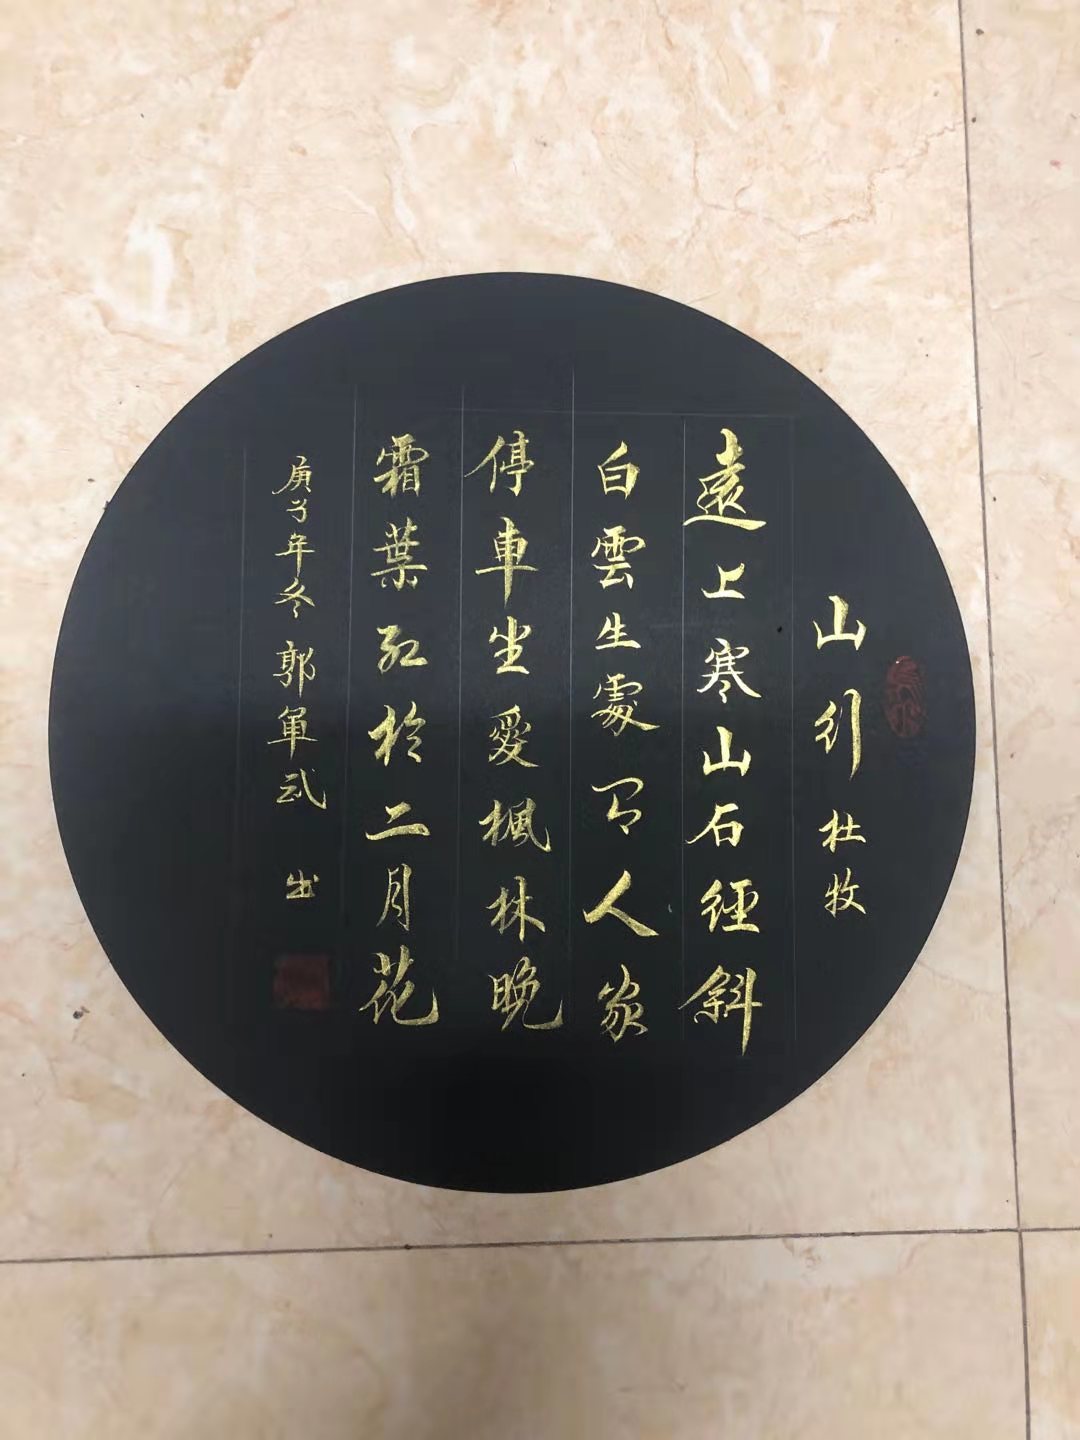 山行 杜牧
遠上寒山石徑斜
白雲生處有人家
停車坐愛楓林晚
霜葉紅於二月花
庚子年冬 郭軍武 书